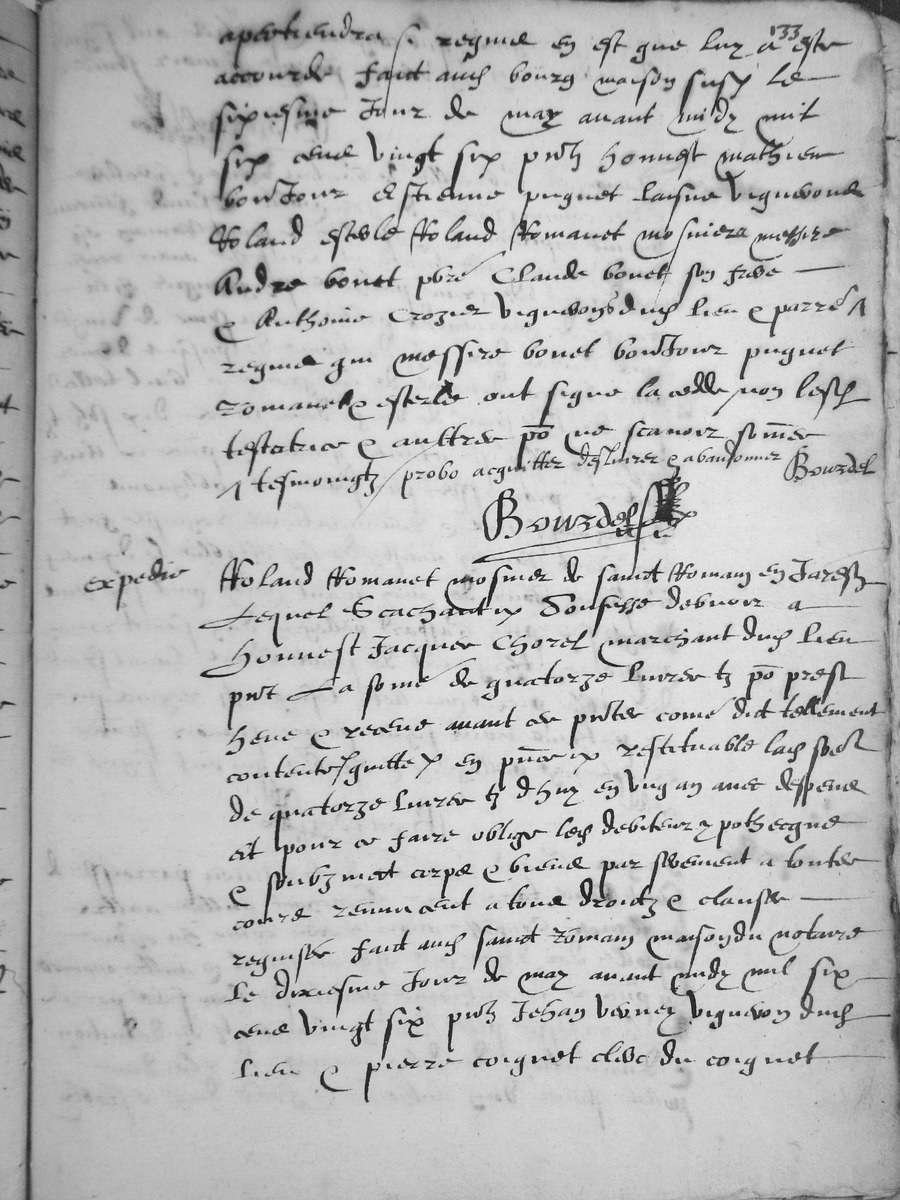 133
apertiendra si requis en est que luy a este
accourde faict aud bourg maison susd le
sixiesme Jour de may avant midy mil
six cens vingt six pntz honnest mathieu
bonJour Estienne puguet laisne vigneron
Roland esterle Roland Romanet mosniers messire
Andre bonet pbre Claude bonet son frere
& Anthoine Crozier vignerons dud lieu & parre /\
requis qui messire bonet bonJour puguet
Romanet & esterle ont signe la cedde non lesd
testatrice & aultres po ne scavoir somes
/\ tesmoingtz / probo acquitter deslivrer & abandonner Bourdel
Bourdel
Expedie
Roland Romanet mosnier de sainct Romain en Jarestz
Lequel Scachant Confesse debvoir a
Honnest Jacques Chorel marchant dud lieu
pnt La some de quatorze livres tz po prest
heue & receue avant ces pntes come dict tellement
contente quitte restituable lad some
de quatorze livres tz d'huy en ung an avec despens
Et pour ce faire oblige led debiteur ypothecque
& soubzmect corps & biens par serement a toutes
cours renuncent a tous droictz & clauses
requises faict aud sainct Romain maison du notaire
le dixiesme Jour de may avant midy mil six
cens vingt six pntz Jehan vigneron dud
lieu & pierre coignet clerc du coignet